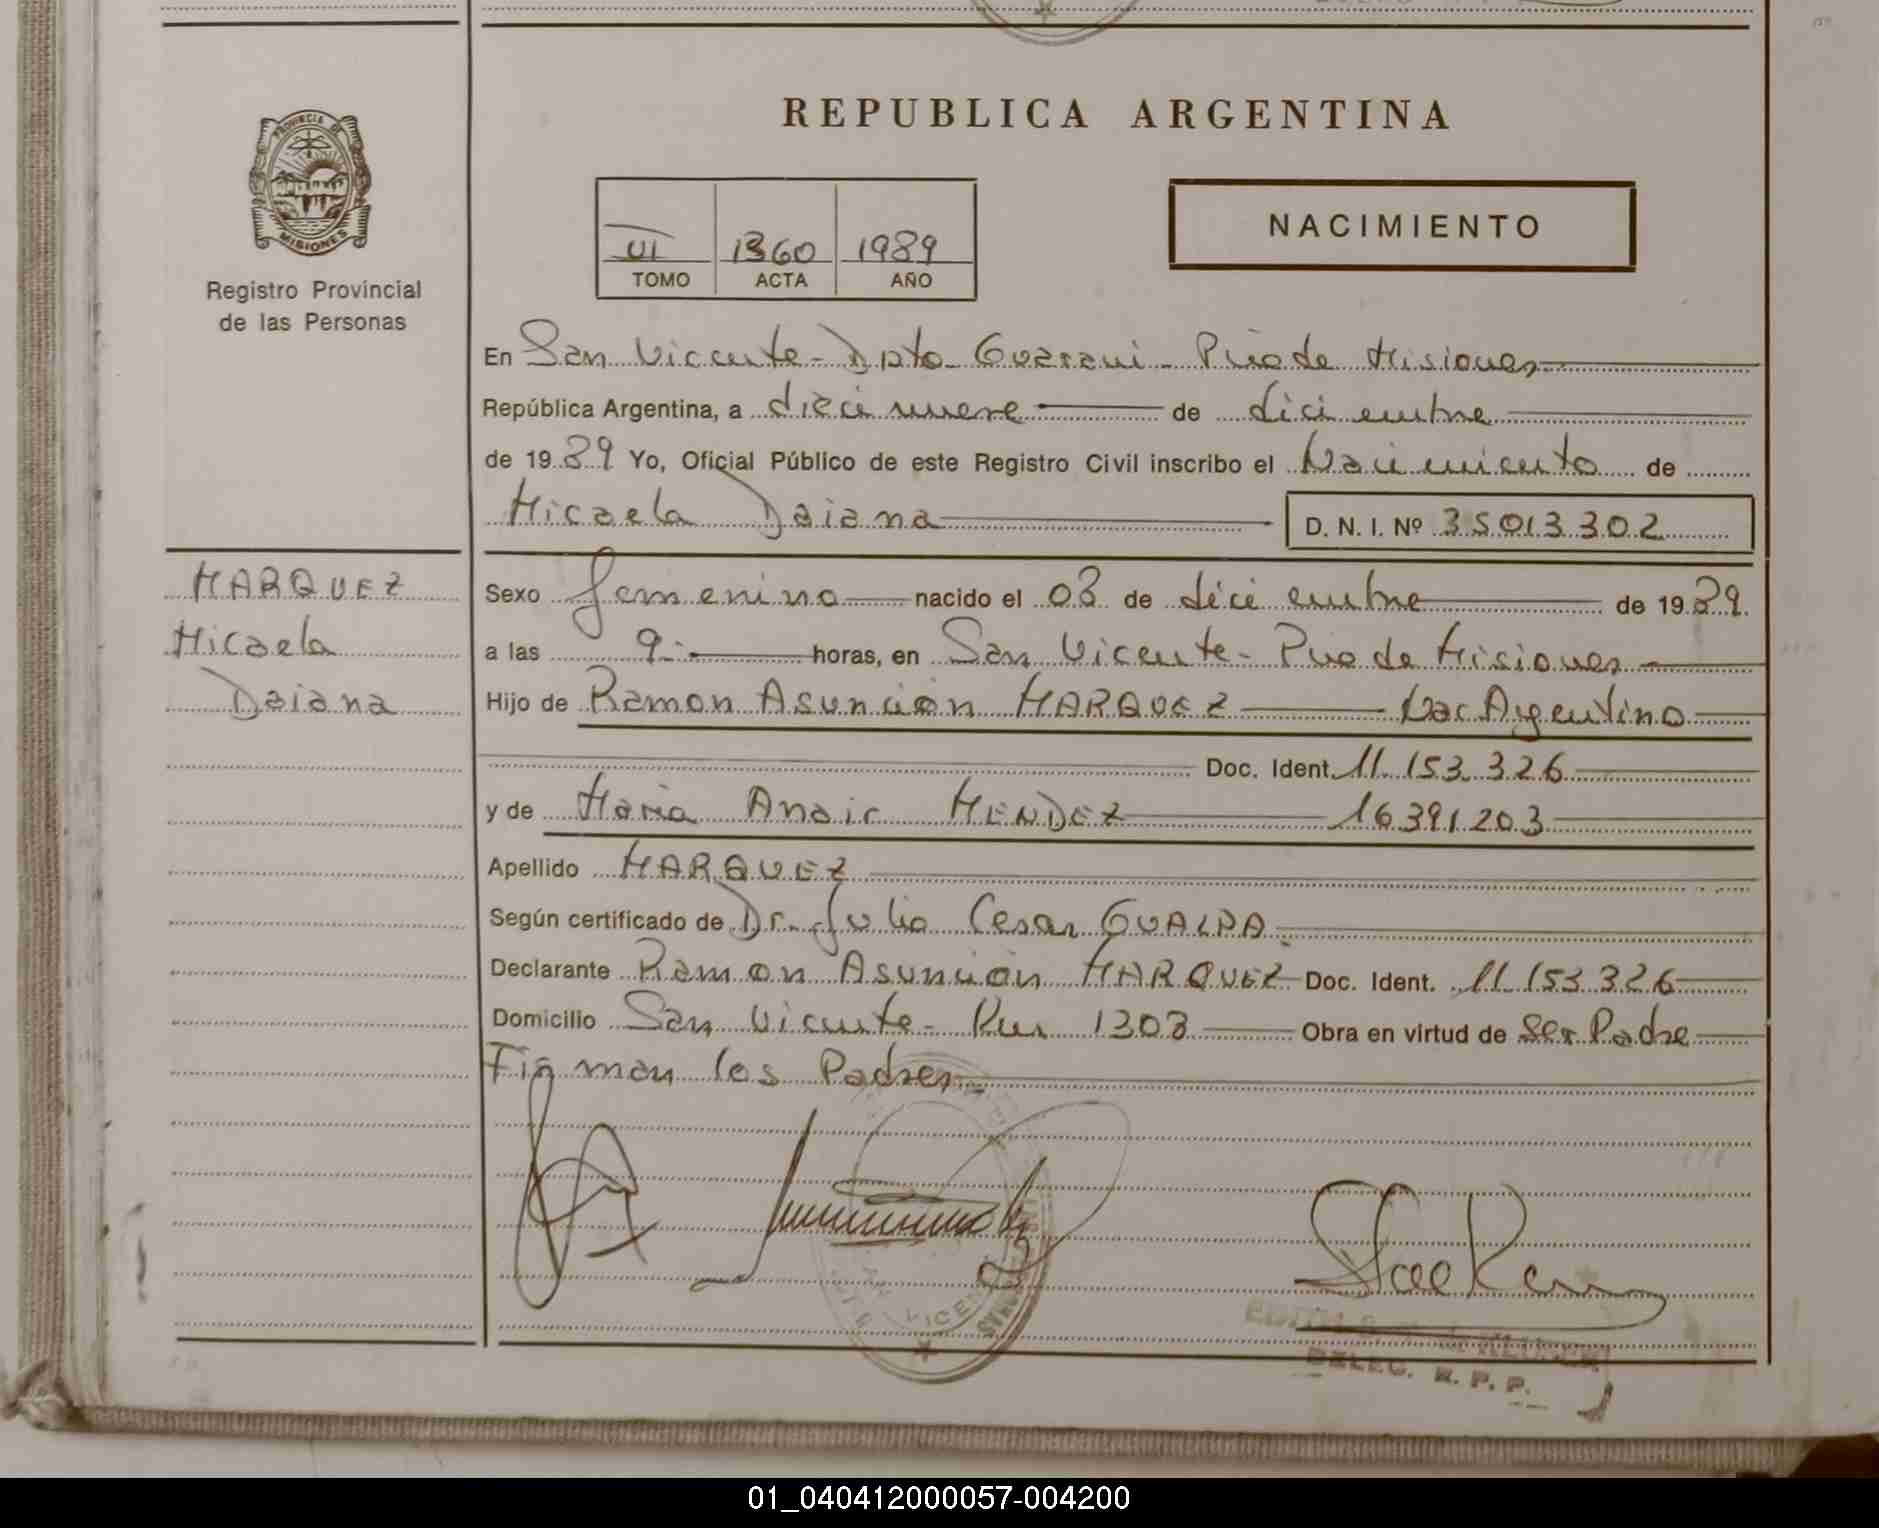 REPUBLICA ARGENTINA
PROVINCIA DE
MISIONES
Registro Provincial
de las Personas
VI 1360 1989
TOMO ACTA AÑO
NACIMIENTO
En San Vicente - Dpto Guarani - Pcia de Misiones
República Argentina, a diecinueve de diciembre
de 1989 Yo, Oficial Público de este Registro Civil inscribo el Nacimiento de
Micaela Daiana D. N. I. Nº 35013302
MARQUEZ
Micaela
Daiana
Sexo femenino nacido el 08 de diciembre de 1989.
a las 9.- horas, en San Vicente - Pcia de Misiones
Hijo de Ramon Asunción MARQUEZ Nac Argentino
Doc. Ident. 11.153.326
y de Maria Anair MENDEZ 16.391.203
Apellido MARQUEZ
Según certificado de Dr. Julio Cesar GUALPA.
Declarante Ramon Asunción MARQUEZ Doc. Ident. 11.153.326
Domicilio San Vicente - 1308 Obra en virtud de Ser Padre
Firman los Padres.
DELEG. R. P. P.
01_040412000057-004200